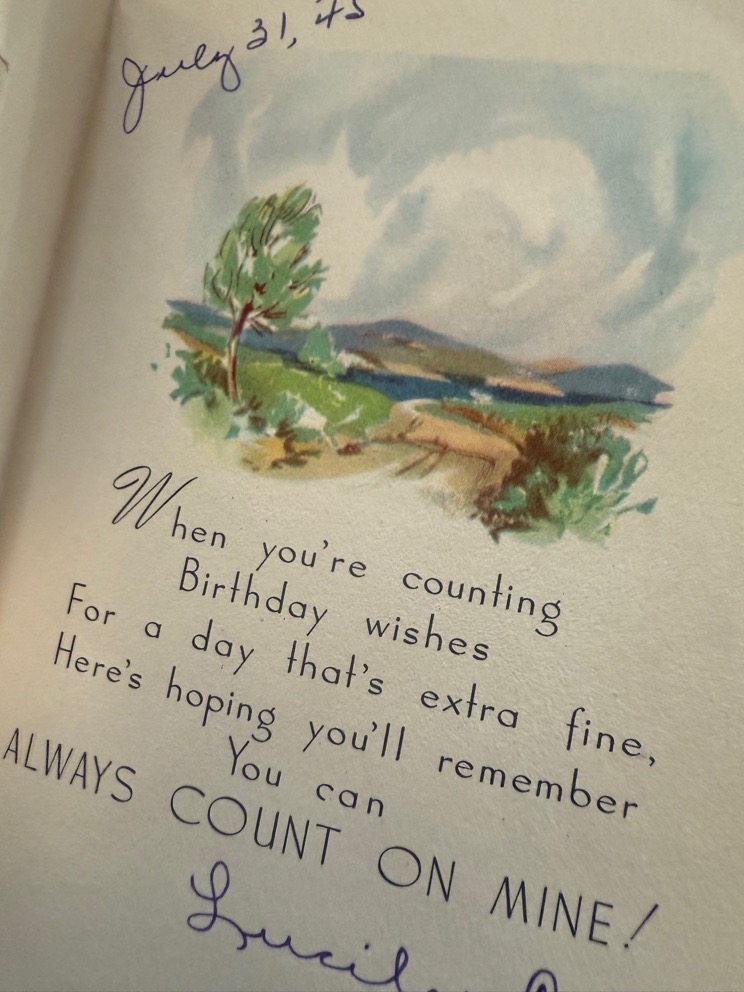 July 31, 45
When you're counting
Birthday wishes
For a day that's extra fine,
Here's hoping you'll remember
You can
ALWAYS COUNT ON MINE!